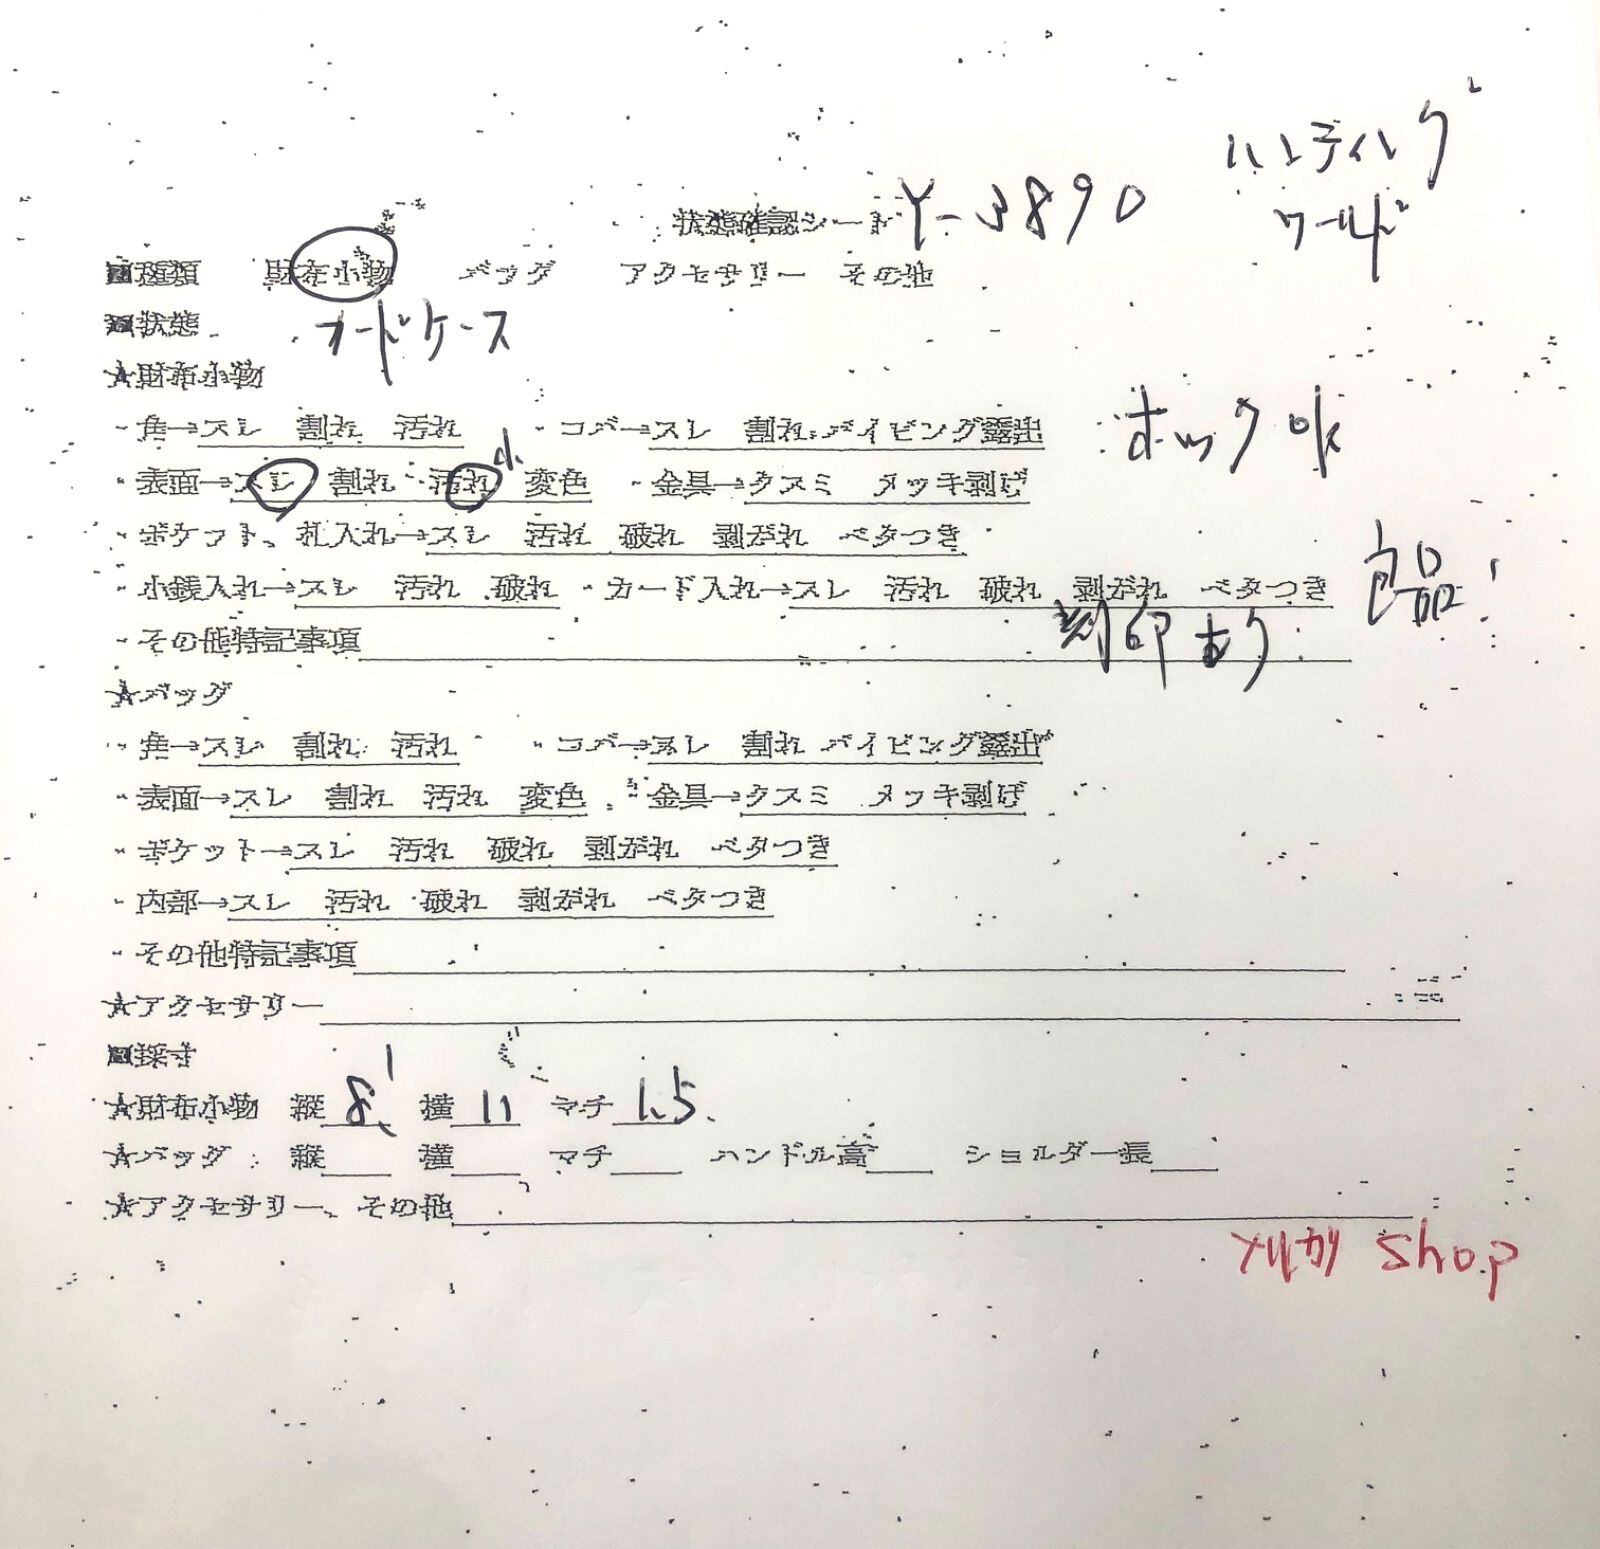 ハンティング
ワールド
状態確認シート Y-3890
■種類 財布小物 バッグ アクセサリー その他
■状態 カードケース
★財布小物
・角→スレ 割れ 汚れ ・コバ→スレ 割れ パイピング露出 ホック ok
・表面→スレ 割れ 汚れ 小 変色 ・金具→クスミ メッキ剥げ
・ポケット、札入れ→スレ 汚れ 破れ 剥がれ ベタつき
・小銭入れ→スレ 汚れ 破れ ・カード入れ→スレ 汚れ 破れ 剥がれ ベタつき 良品!
・その他特記事項 刻印あり
★バッグ
・角→スレ 割れ 汚れ ・コバ→スレ 割れ パイピング露出
・表面→スレ 割れ 汚れ 変色 ・金具→クスミ メッキ剥げ
・ポケット→スレ 汚れ 破れ 剥がれ ベタつき
・内部→スレ 汚れ 破れ 剥がれ ベタつき
・その他特記事項
★アクセサリー
■採寸
★財布小物 縦 8 横 11 マチ 1.5
★バッグ 縦 横 マチ ハンドル高 ショルダー長
★アクセサリー、その他
メルカリ Shop